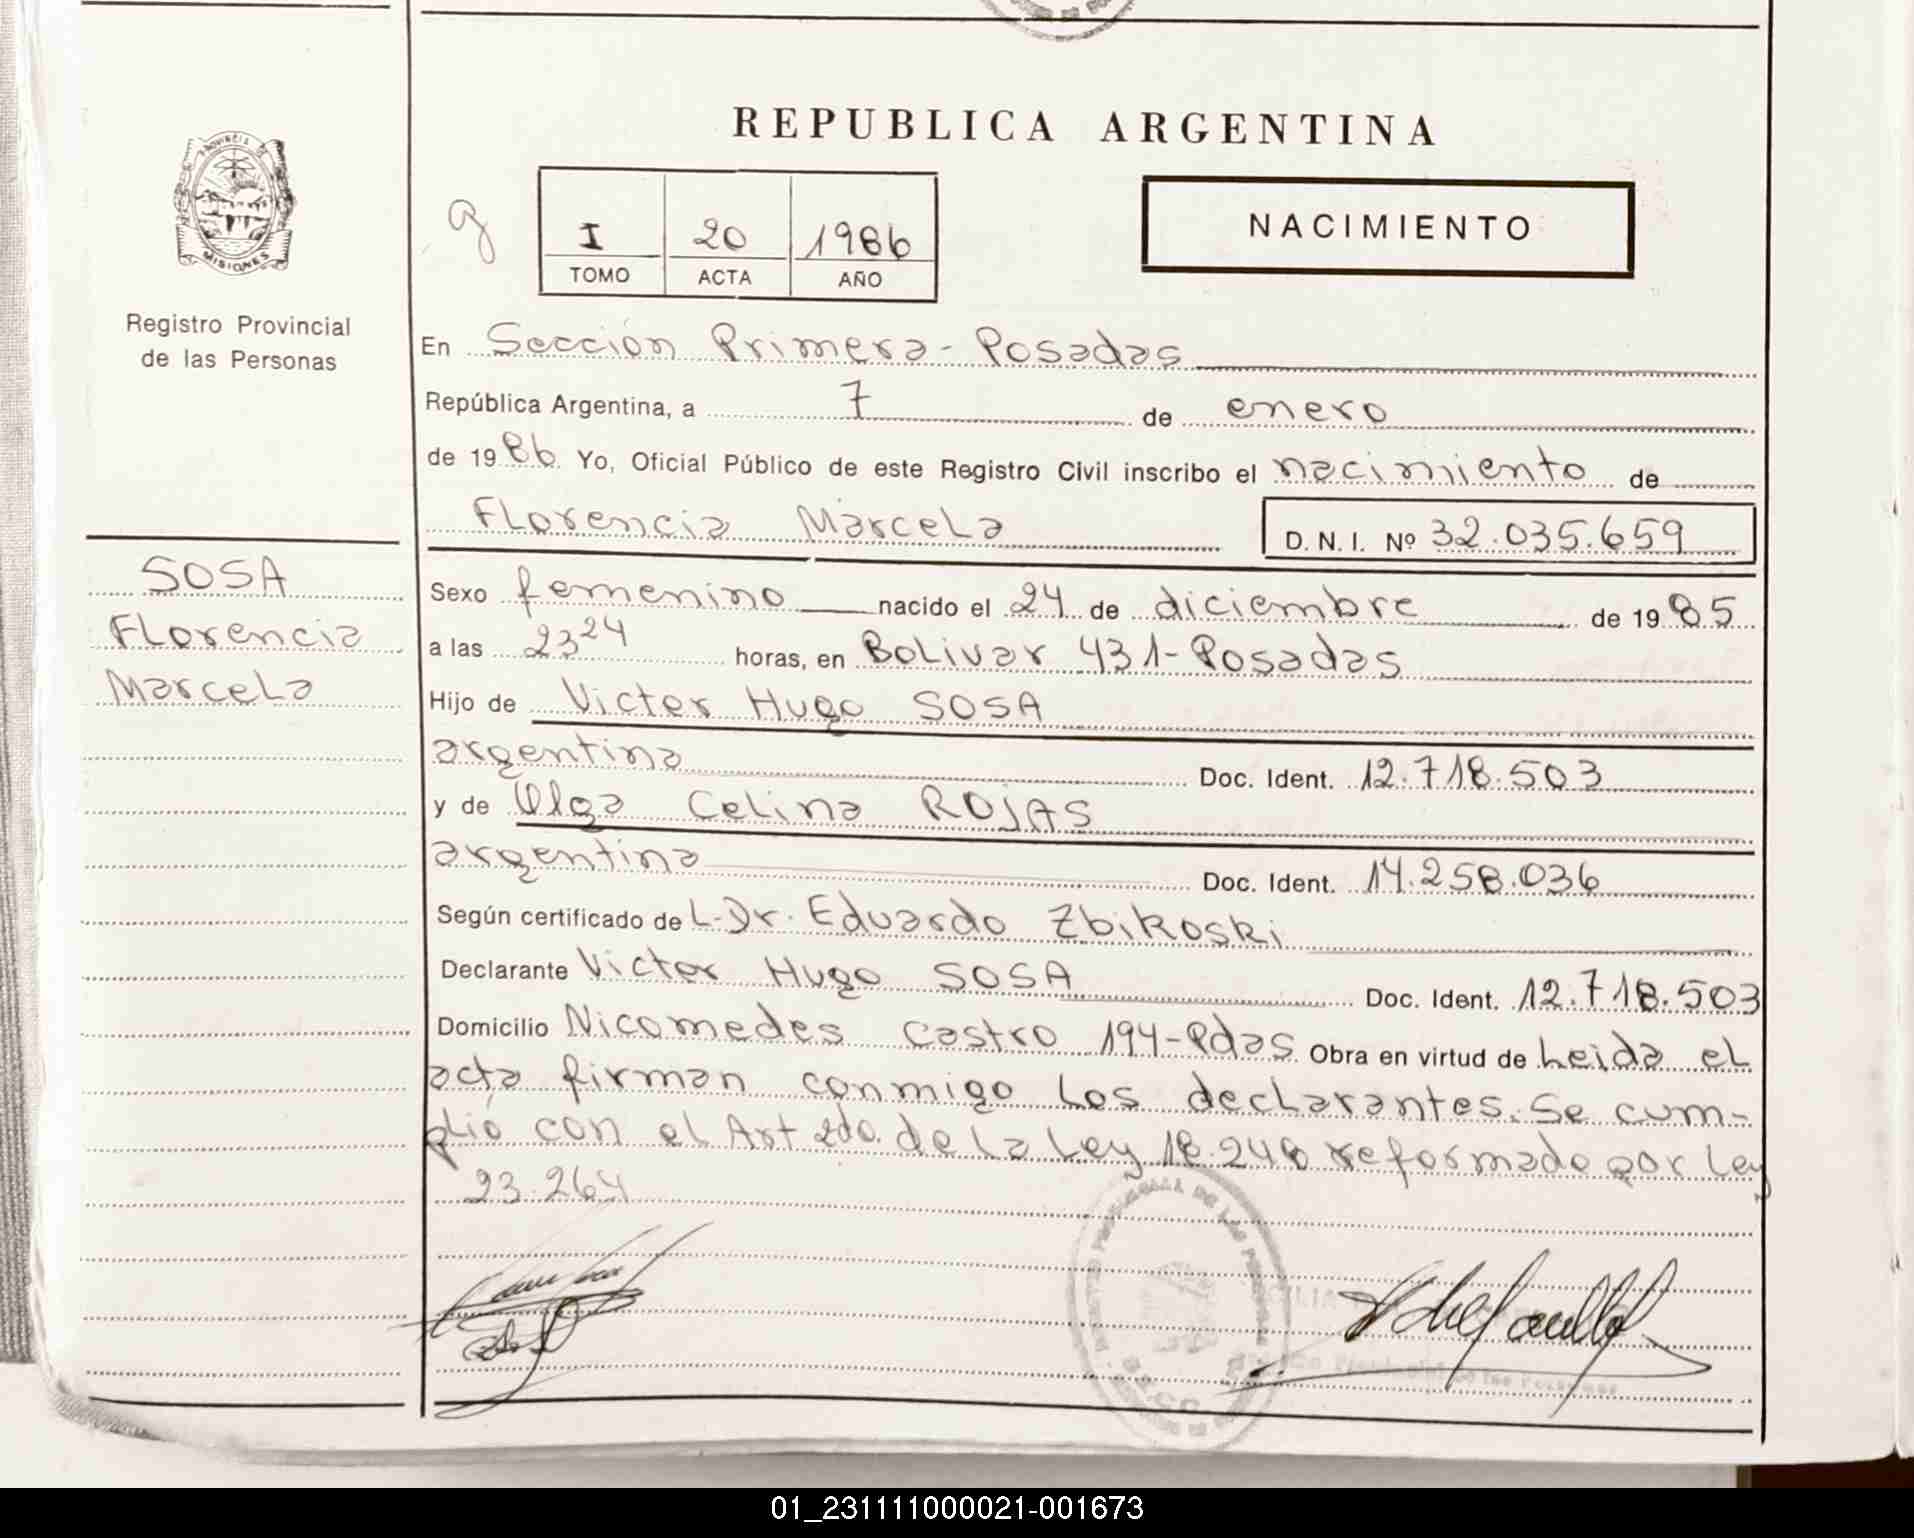 REPUBLICA ARGENTINA
PROVINCIA DE
MISIONES
Registro Provincial
de las Personas
g
I 20 1986
TOMO ACTA AÑO
NACIMIENTO
En Sección Primera - Posadas
República Argentina, a 7 de enero
de 1986 Yo, Oficial Público de este Registro Civil inscribo el nacimiento de
Florencia Marcela D.N.I. Nº 32.035.659
SOSA
Florencia
Marcela
Sexo femenino nacido el 24 de diciembre de 1985
a las 23 24 horas, en Bolivar 431 - Posadas
Hijo de Victor Hugo SOSA
argentina Doc. Ident. 12.718.503
y de Olga Celina ROJAS
argentina Doc. Ident. 14.258.036
Según certificado de L. Dr. Eduardo Zbikoski
Declarante Victor Hugo SOSA Doc. Ident. 12.718.503
Domicilio Nicomedes Castro 194 - Pdas Obra en virtud de Leida el
acta firman conmigo los declarantes. Se cum-
plió con el Art 2do. de la Ley 18.248 reformado por Ley
23.264
01_231111000021-001673